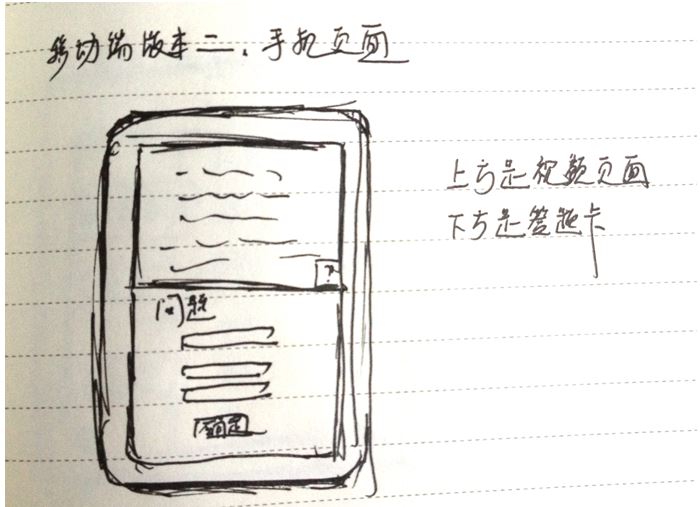 移动端版本二、手机页面
上方是视频页面
下方是答题卡
?
问题
确定